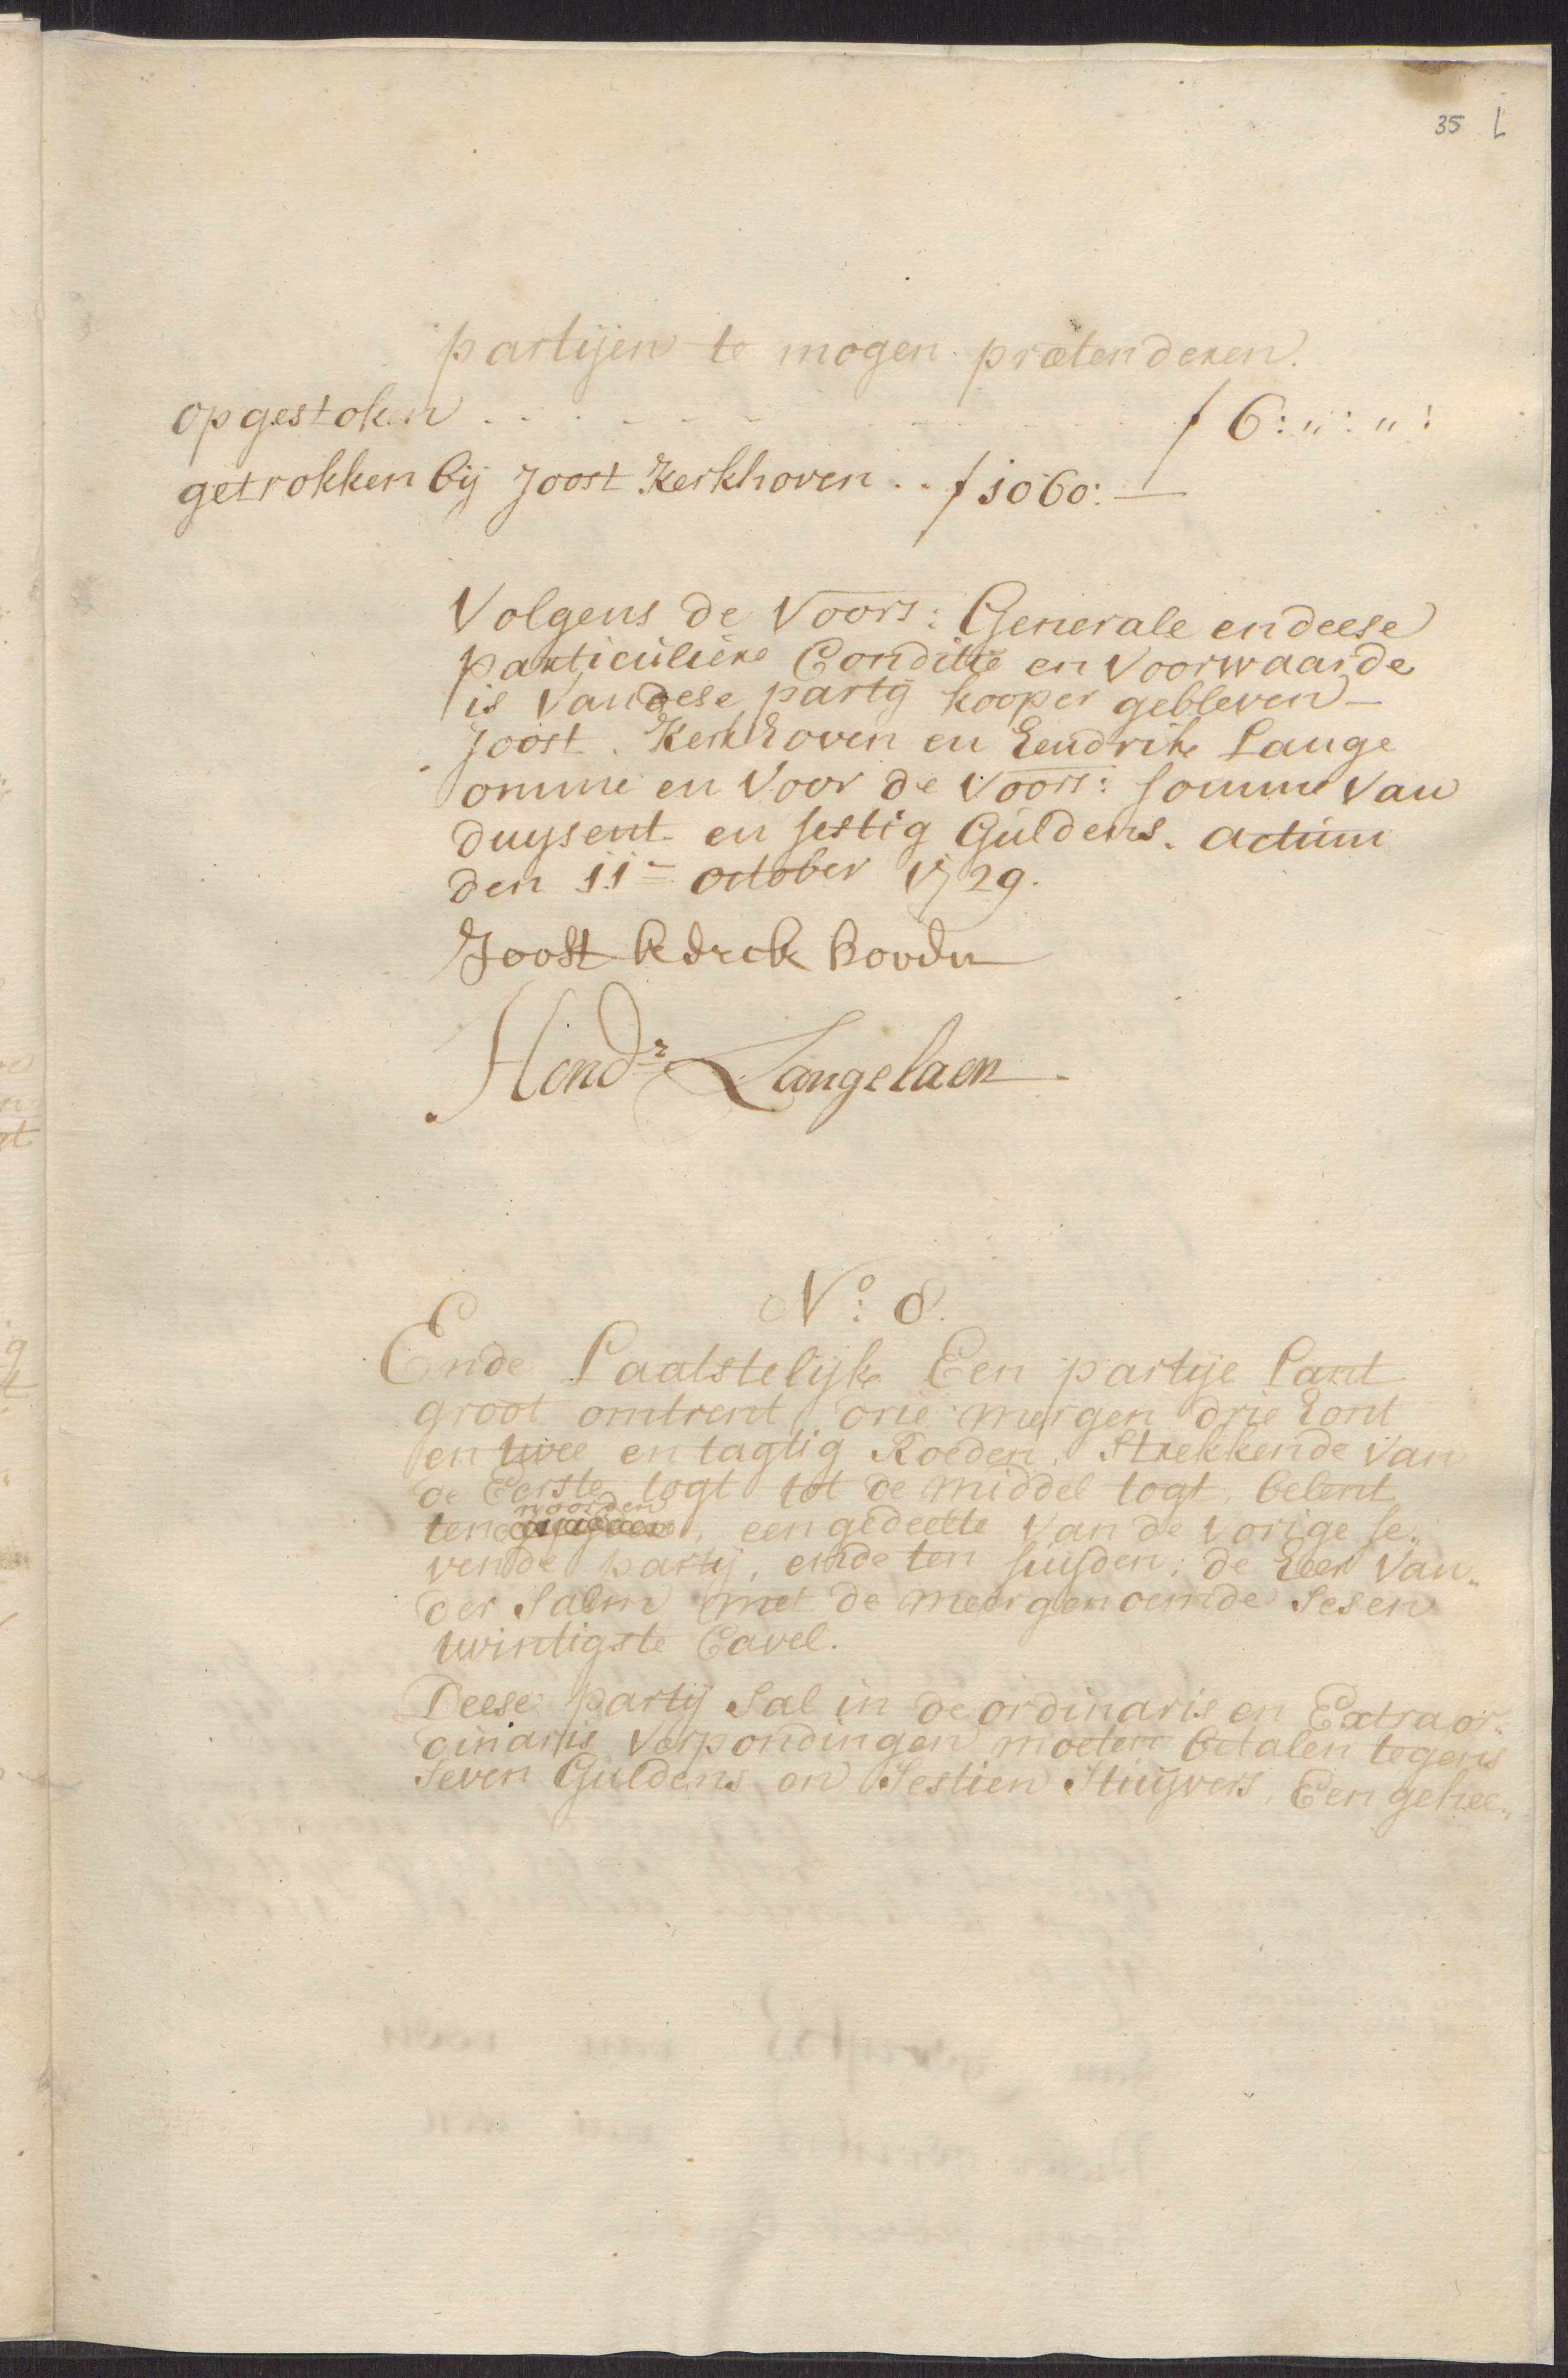 35 L
partijen te mogen prætenderen.
opgestoken . . . . . . . . . ƒ 6:„:„:
getrokken bij Joost Kerkhoven . . ƒ 1060:—
Volgens de Voors: Generale en deese
particuliere Conditie en Voorwaarde
is Van dese partij kooper gebleven—
Joost Kerkhoven en Hendrik Lange
omme en Voor de Voors: somme Van
duysent en sestig Guldens. Actum
den 11= October 1729.
Joost kerck hoven
Hendr Langelaen
No: 8.
Ende Laatstelijk Een partije Lant
groot omtrent drie mergen drie hont
en twee en tagtig Roeden, Strekkende Van
de Eerste togt tot de middel togt, belent
noorden
ten , een gedeelte Van de Vorige se„
vende partij, ende ten suijden, de Heer Van„
der Salm met de meergenoemde Sesen
twintigste Cavel.
Deese partij Sal in de ordinaris en Extraor„
dinaris Verpondingen moeten betalen tegens
Seven Guldens en Sestien Stuijvers, Een gehee„